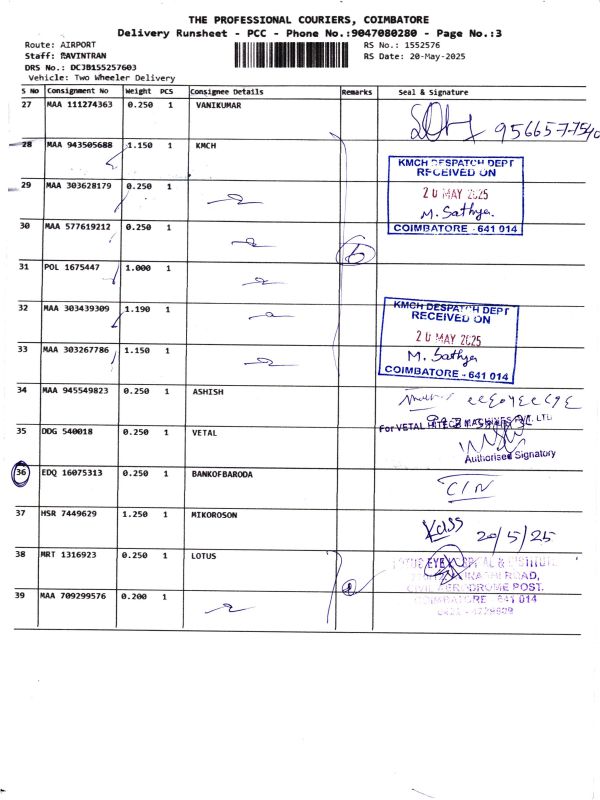 THE PROFESSIONAL COURIERS, COIMBATORE
Delivery Runsheet - PCC - Phone No.:9047080280 - Page No.:3
Route: AIRPORT
RS No.: 1552576
Staff: RAVINTRAN
RS Date: 20-May-2025
DRS No.: DCJB155257603
Vehicle: Two Wheeler Delivery
S No Consignment No Weight PCS Consignee Details Remarks Seal & Signature
27 MAA 111274363 0.250 1 VANIKUMAR
28 MAA 943505688 1.150 1 KMCH
KMCH DESPATCH DEPT
RECEIVED ON
29 MAA 303628179 0.250 1
20 MAY 2025
M. Sathya
30 MAA 577619212 0.250 1
COIMBATORE - 641 014
31 POL 1675447 1.000 1
32 MAA 303439309 1.190 1
KMCH DESPATCH DEPT
RECEIVED ON
20 MAY 2025
33 MAA 303267786 1.150 1
M. Sathya
COIMBATORE - 641 014
34 MAA 945549823 0.250 1 ASHISH
35 DDG 540018 0.250 1 VETAL
For VETAL HITECH MACHINES PVT. LTD
Authorised Signatory
36 EDQ 16075313 0.250 1 BANKOFBARODA
37 HSR 7449629 1.250 1 MIKOROSON
20/5/25
38 MRT 1316923 0.250 1 LOTUS
LOTUS EYE HOSPITAL &
ROAD,
CIVIL AERODROME POST.
39 MAA 709299576 0.200 1
COIMBATORE - 641 014